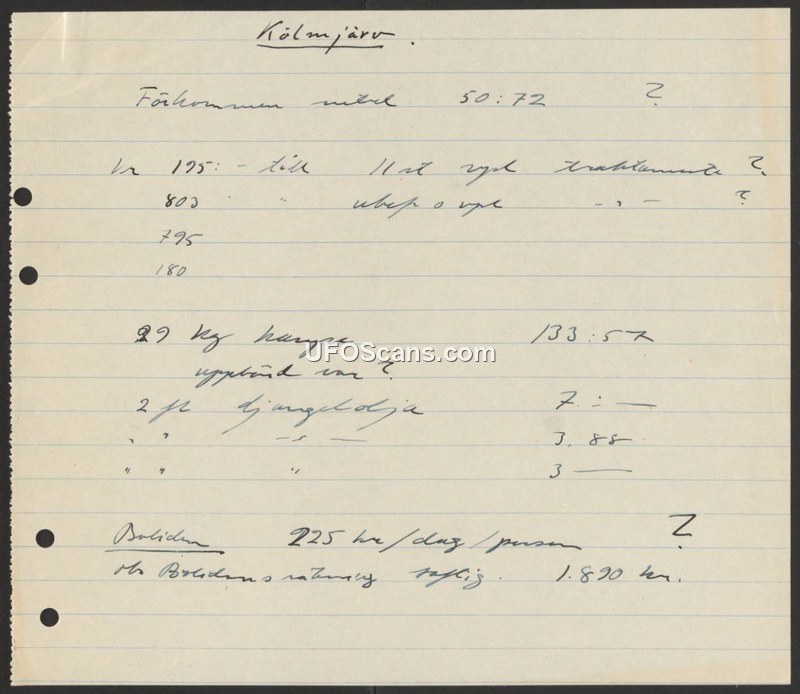 Kölmjärv.
Förkommen metod 50:72 ?
kr 195:- till 11 st vpl traktamente ?
803 " " ubef o vpl - " - ?
795
180
29 kg kaggar 133:57
uppbörd var ?
2 fl djungelolja 7:—
" " - " - 3,88
" " " 3 —
Boliden 225 kr/dag/person ?
obs Bolidens räkning saftig. 1.890 kr.
UFOScans.com